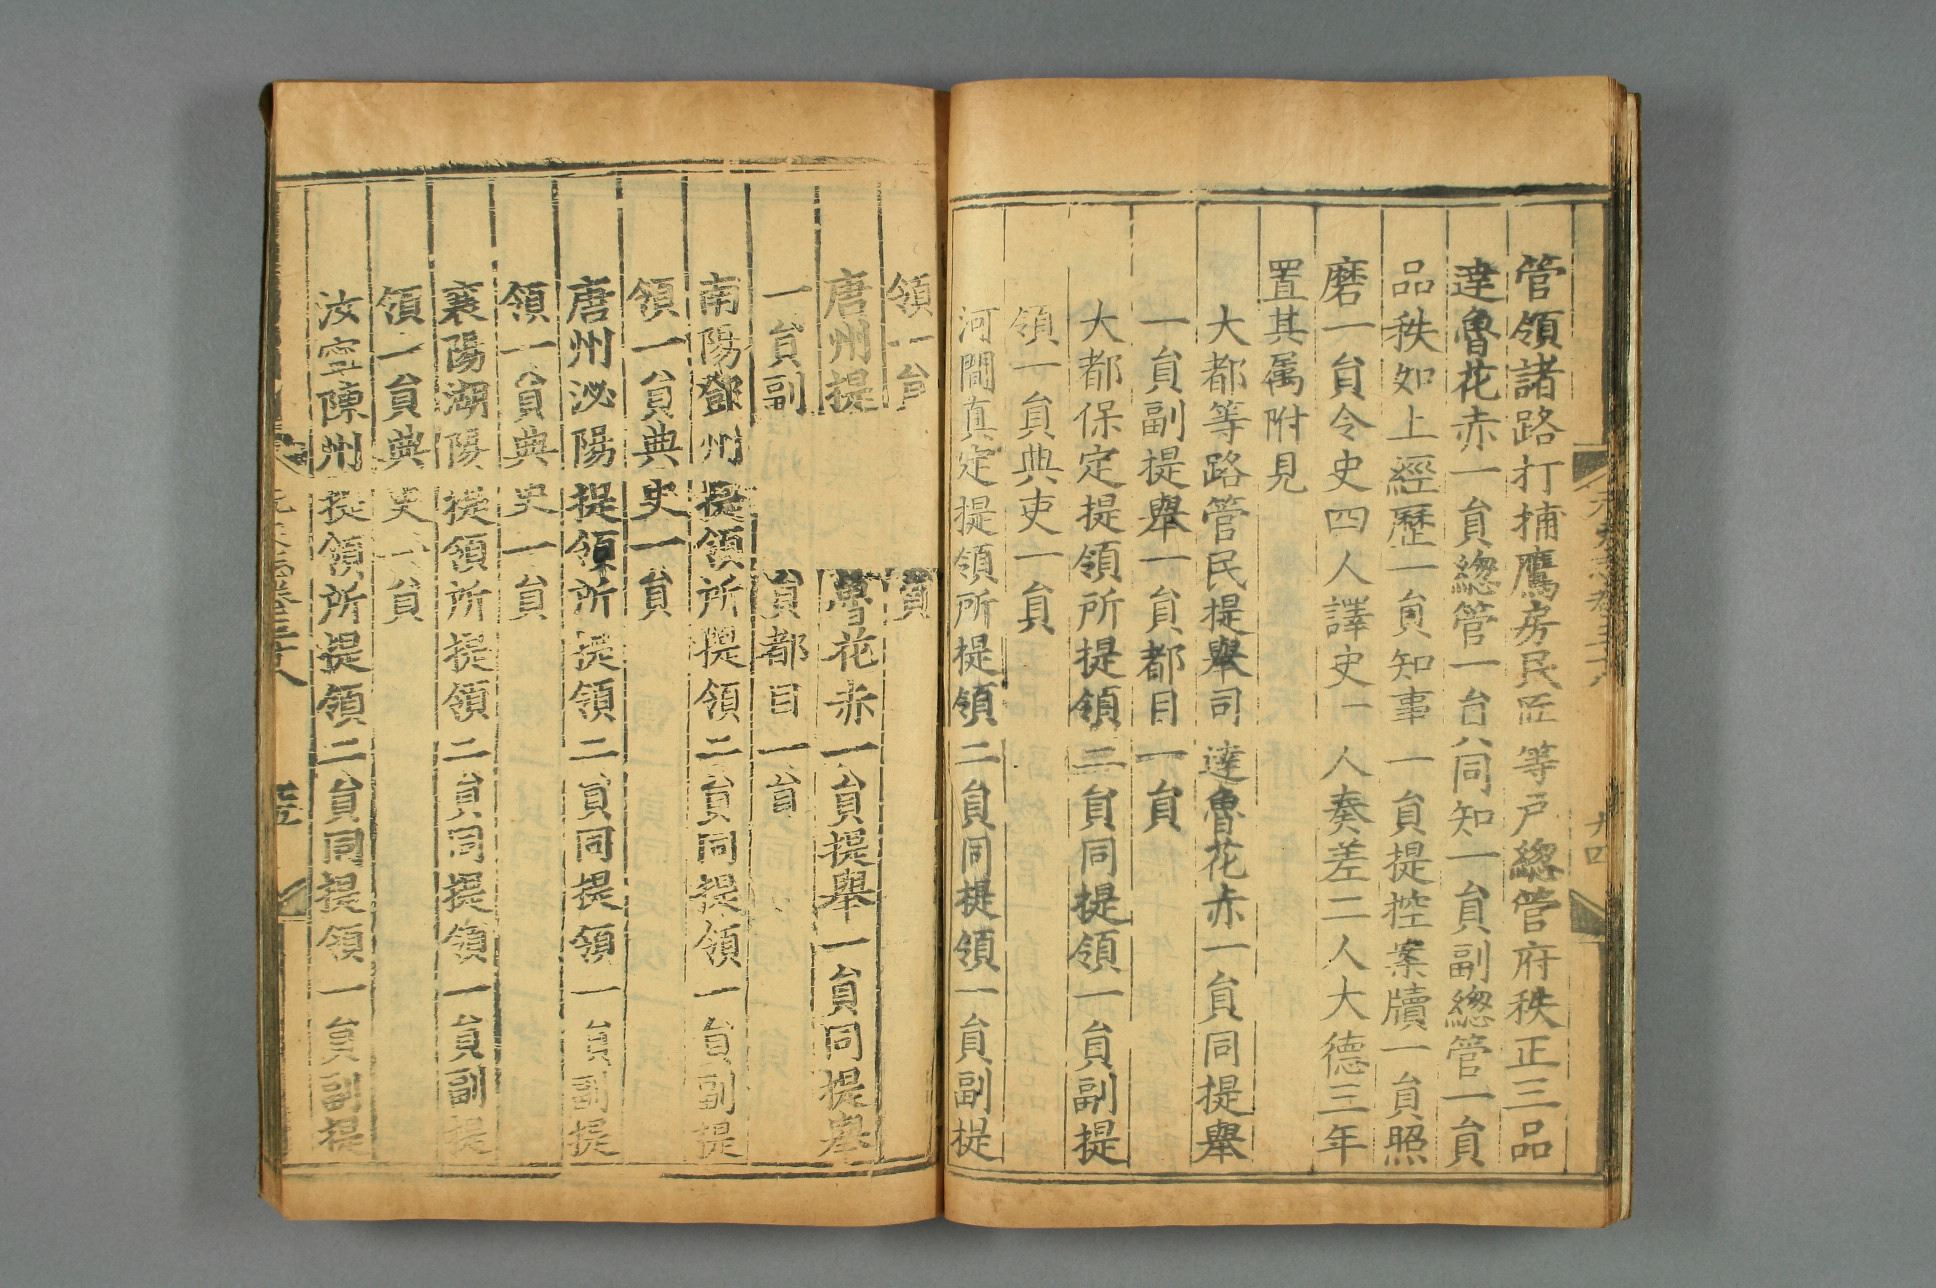 管領諸路打捕鷹房民匠等戶緫管府秩正三品
達魯花赤一員緫管一員同知一員副緫管一員
品秩如上經歷一員知事一員提控案牘一員照
磨一員令史四人譯史一人奏差二人大德三年
置其属附見
大都等路管民提舉司達魯花赤一員同提舉
一員副提舉一員都目一員
大都保定提領所提領二員同提領一員副提
領一員典吏一員
河間真定提領所提領二員同提領一員副提
領一員
員
唐州提
魯花赤一員提舉一員同提舉
一員副
員都目一員
南陽鄧州提領所提領二員同提領一員副提
領一員典史一員
唐州泌陽提領所提領二員同提領一員副提
領一員典史一員
襄陽湖陽提領所提領二員同提領一員副提
領一員典吏一員
汝寧陳州提領所提領二員同提領一員副提